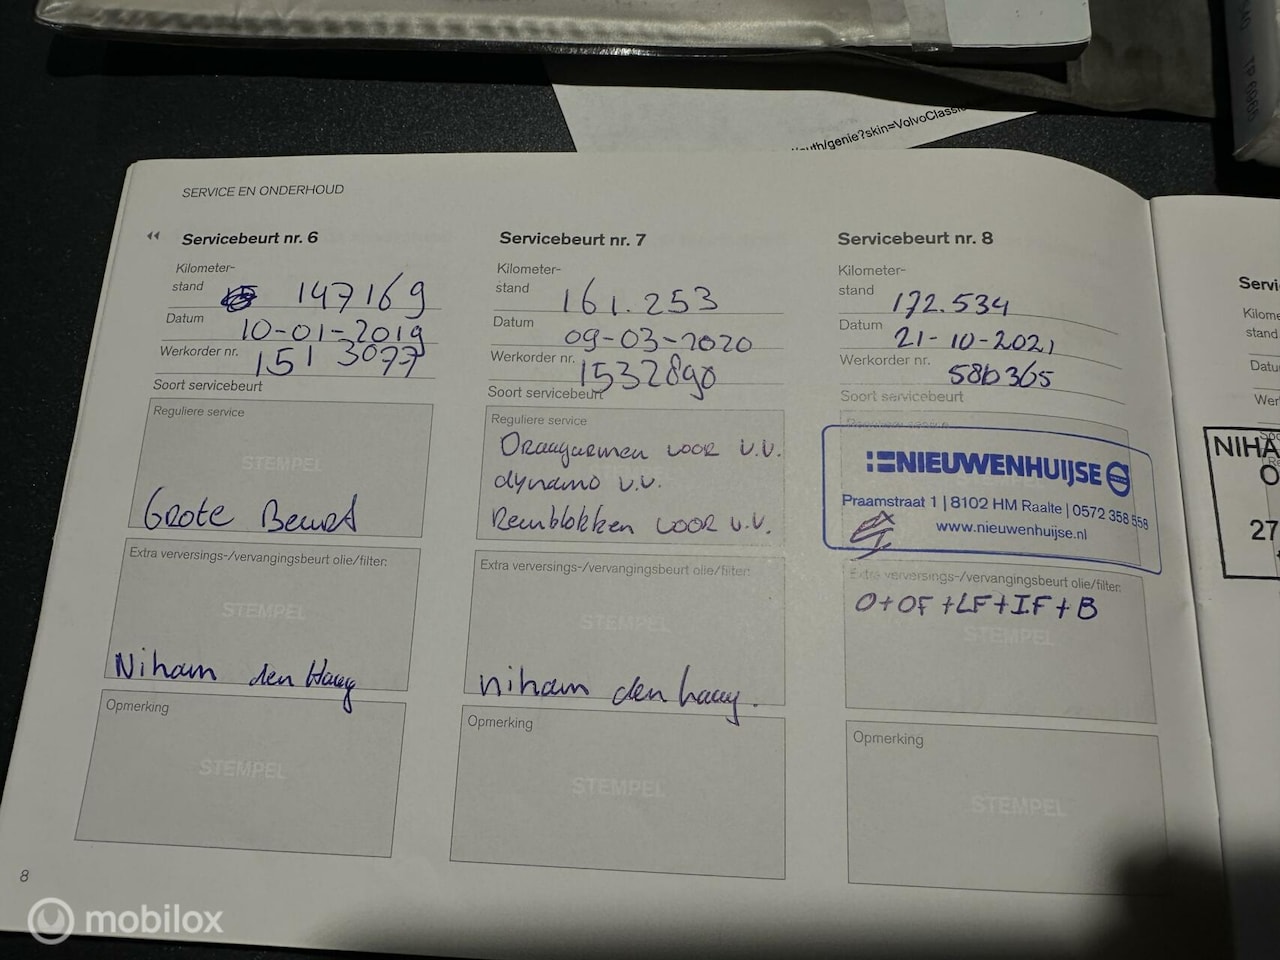 TP 6965
/auth/genie?skin=VolvoClassic
SERVICE EN ONDERHOUD
Servicebeurt nr. 6
Kilometer-
stand 147169
Datum 10-01-2019
Werkorder nr. 1513077
Soort servicebeurt
Reguliere service
STEMPEL
Grote Beurt
Extra verversings-/vervangingsbeurt olie/filter:
STEMPEL
Niham den Haag
Opmerking
STEMPEL
Servicebeurt nr. 7
Kilometer-
stand 161.253
Datum 09-03-2020
Werkorder nr. 1532890
Soort servicebeurt
Reguliere service
Draagarmen voor v.v.
dynamo v.v.
Remblokken voor v.v.
Extra verversings-/vervangingsbeurt olie/filter:
STEMPEL
niham den haag.
Opmerking
STEMPEL
Servicebeurt nr. 8
Kilometer-
stand 172.534
Datum 21-10-2021
Werkorder nr. 586365
Soort servicebeurt
NIEUWENHUIJSE
Praamstraat 1 | 8102 HM Raalte | 0572 358 558
www.nieuwenhuijse.nl
Extra verversings-/vervangingsbeurt olie/filter:
O+OF+LF+IF+B
STEMPEL
Opmerking
STEMPEL
Servi
Kilome
stand
Datu
Wer
NIHA
O
27
8
mobilox